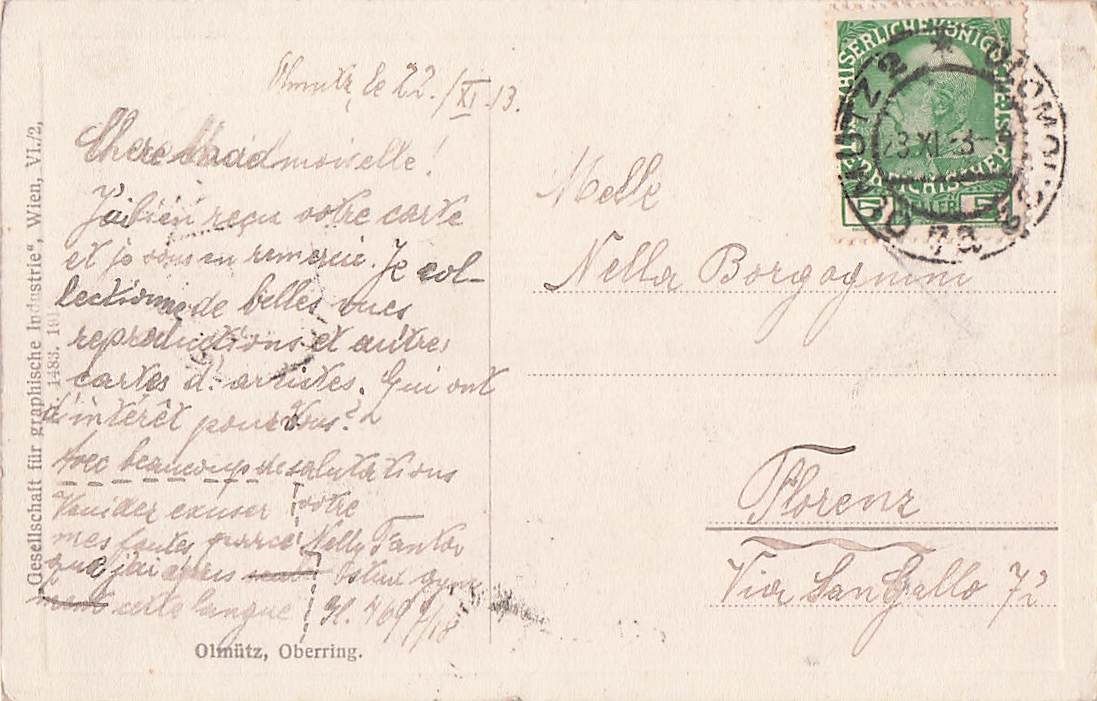 Olmütz, le 22./XI. 13.
Chere Maadmoiselle!
J'ai bien reçu votre carte
et je vous en remercie. Je col-
lectionne de belles vues
reproductions et autres
cartes d. artistes. Qui ont
d'intérêt pour vous?
Avec beaucoup de salutations
votre
Nelly Fantor
Veuillez exuser
mes fautes parce
que j'ai apris
cette langue
Melle
Nella Borgognini
Florenz
Via San Gallo 72
KAISERLICHE KÖNIGLICHE ÖSTERREICHISCHE POST
5 HELLER 5
OLMÜTZ 2 * OLOMOUC 2
23 XI 13
Gesellschaft für graphische Industrie", Wien, VI./2,
1483.
Olmütz, Oberring.